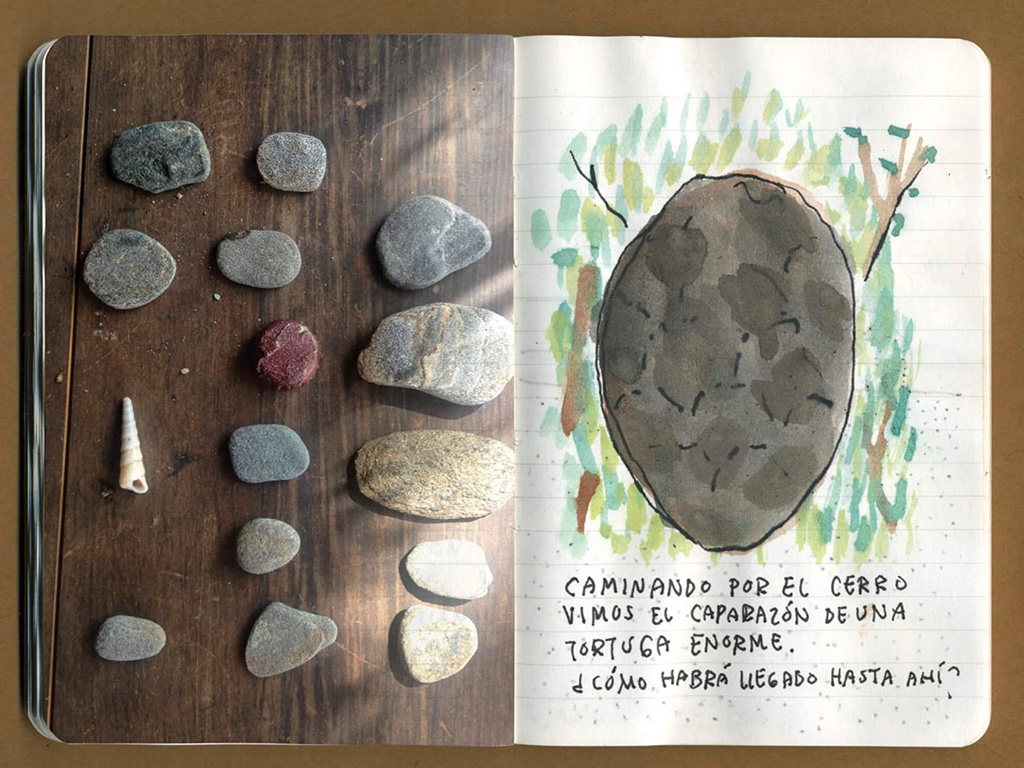 CAMINANDO POR EL CERRO
VIMOS EL CAPARAZÓN DE UNA
TORTUGA ENORME.
¿CÓMO HABRÁ LLEGADO HASTA AHÍ?